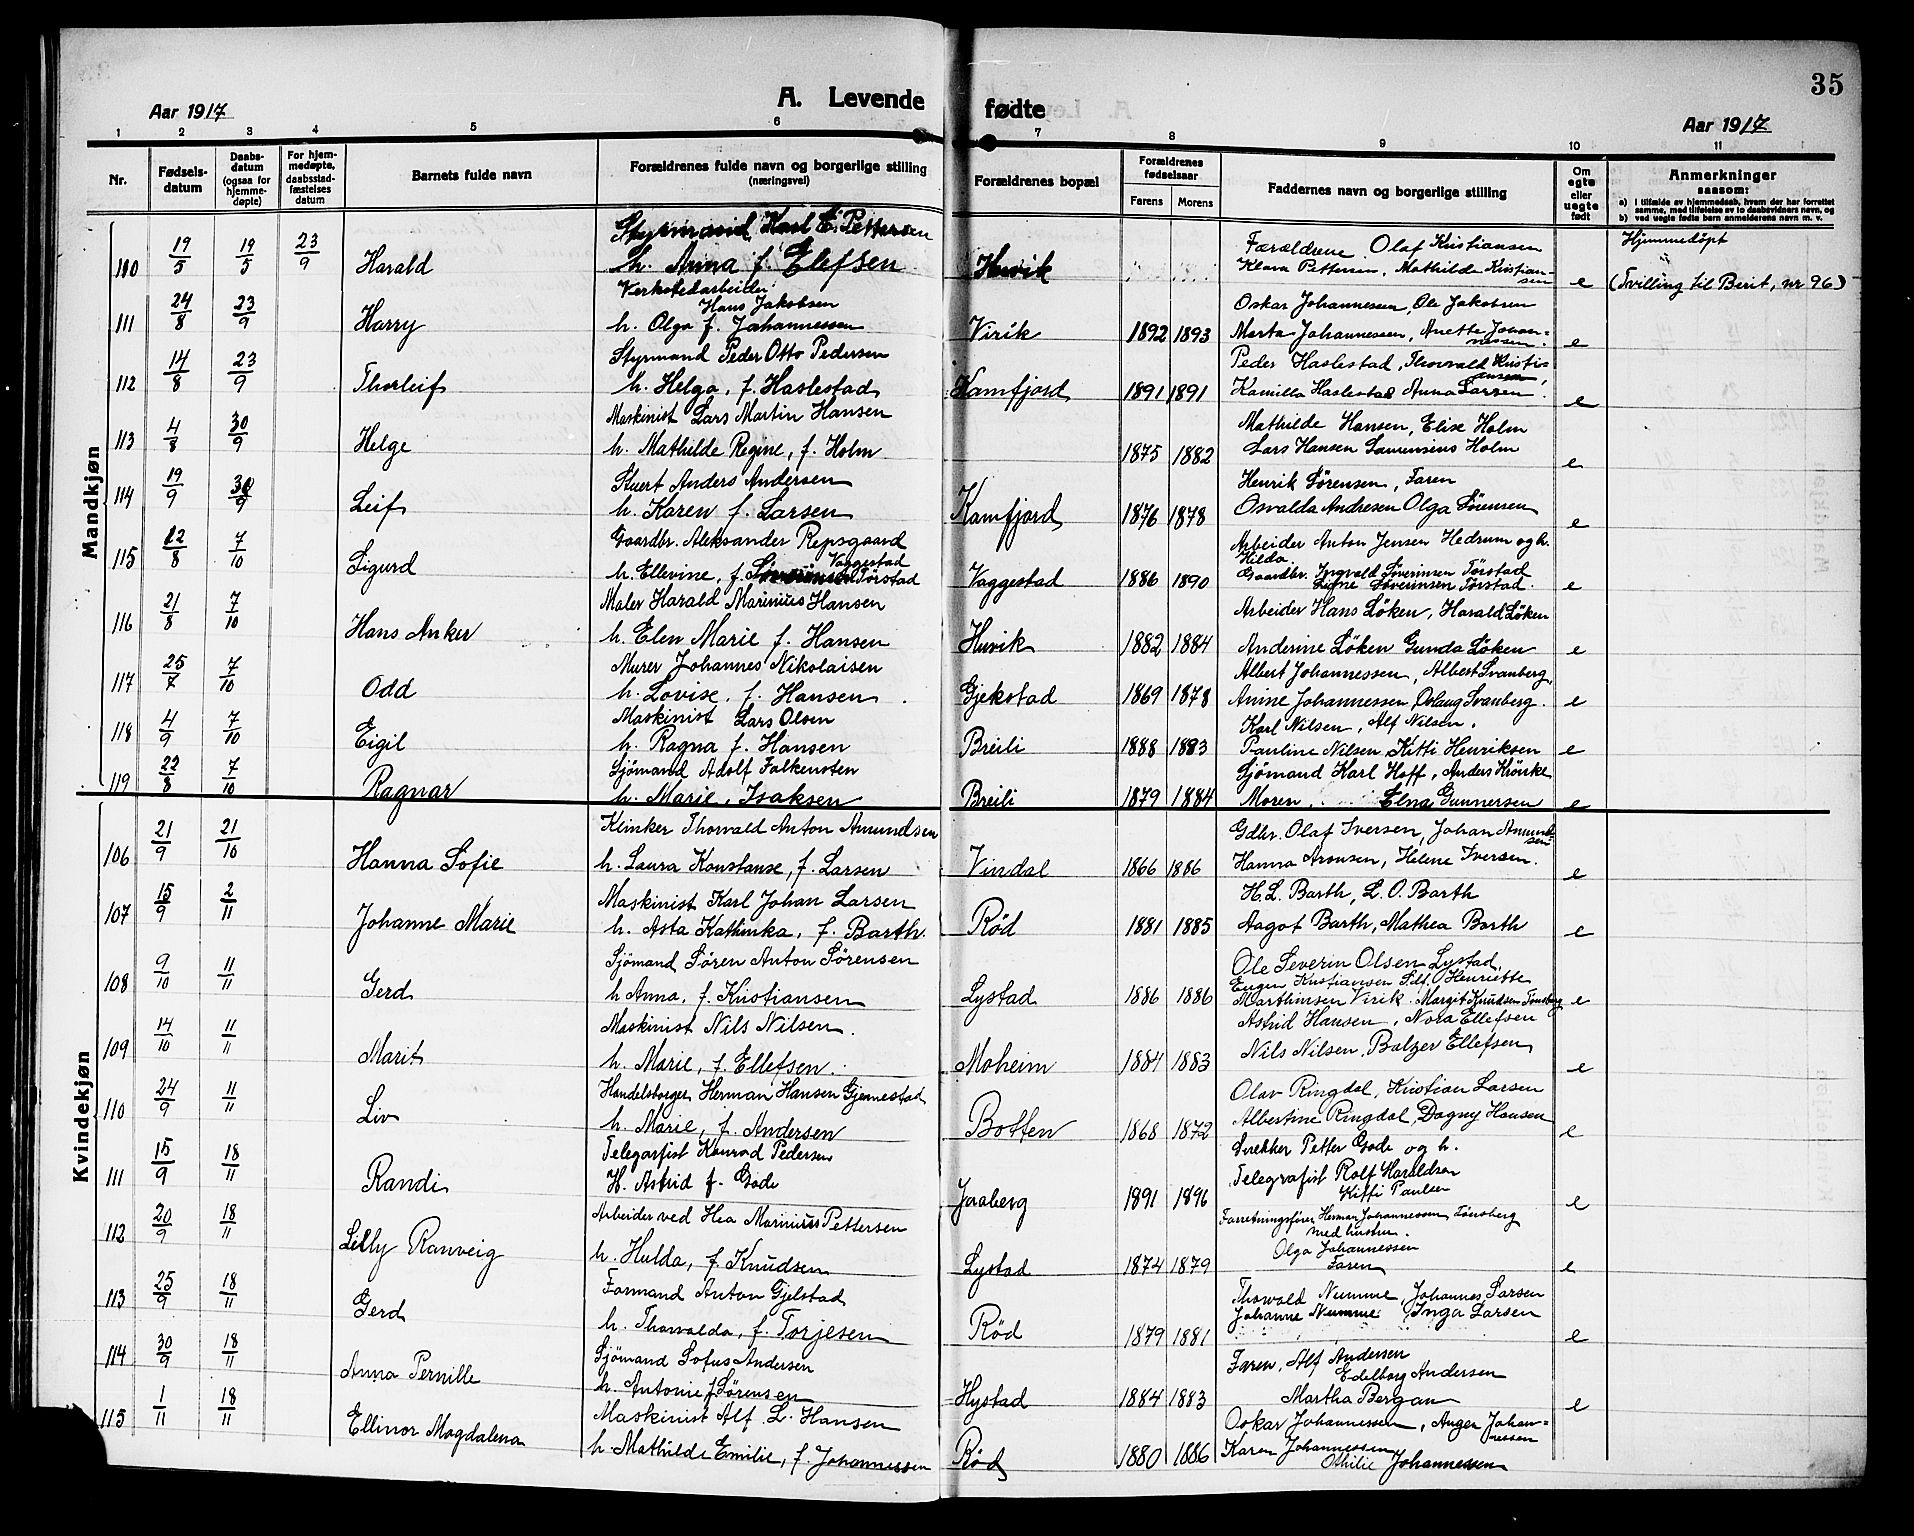 35
Aar 1917
A. Levende
fødte
Aar 1917
1 2 3 4 5 6 7 8 9 10 11
Nr.
Fødsels-
datum
Daabs-
datum
(ogsaa for
hjemme-
døpte)
For hjem-
medøpte,
daabsstad-
fæstelses
datum
Barnets fulde navn
Forældrenes fulde navn og borgerlige stilling
(næringsvei)
Forældrenes bopæl
Forældrenes
fødselsaar
Farens Morens
Faddernes navn og borgerlige stilling
Om
egte
eller
uegte
født
Anmerkninger
saasom:
a) i tilfælde av hjemmedaab, hvem der har forrettet
samme, med tilføielse av to daabsvidners navn, og
b) ved uegte fødte barn anmelderens navn m. v.
Mandkjøn
Styrmand Karl E. Pettersen
Forældrene. Olaf Kristiansen
Hjemmedøpt
110 19/5 19/5 23/9 Harald h. Anna f. Elefsen Huvik Klara Pettersen, Mathilde Kristian-
sen e (Tvilling til Berit, nr 96)
Verkstedarbeider
Hans Jakobsen
Oskar Johannessen, Ole Jakobsen
111 24/8 23/9 Harry h. Olga f. Johannessen Virik 1892 1893 Marta Johannessen, Anette Johan-
nessen. e
Styrmand Peder Otto Pedersen
Peder Haslestad, Thorvald Kristi-
ansen,
112 14/8 23/9 Thorleif h. Helga, f. Haslestad Kamfjord 1891 1891 Kamilla Haslestad Anna Larsen. e
Maskinist Lars Martin Hansen
Mathilde Hansen, Elise Holm
113 4/8 30/9 Helge h. Mathilde Regine, f. Holm 1875 1882 Lars Hansen Laurensens Holm e
Stuert Anders Andersen
Henrik Sörensen, Faren
114 19/9 30/9 Leif h. Karen f. Larsen Kamfjord 1876 1878 Osvalda Andresen Olga Sörensen e
Gaardbr. Aleksander Repsgaard
Vaggestad
Arbeider Anton Jensen Hedrum og h.
Hilda
115 12/8 7/10 Sigurd h. Ellevine, f. Törstad Vaggestad 1886 1890 Gaardbr. Ingvald Séverinsen Törstad
Signe Séverinsen Törstad. e
Maler Harald Marinius Hansen
Arbeider Hans Löken, Harald Löken
116 21/8 7/10 Hans Anker h. Elen Marie f. Hansen Huvik 1882 1884 Anderine Löken Gunda Löken e
Murer Johannes Nikolaisen
Albert Johannessen, Albert Svanberg,
117 25/7 7/10 Odd h. Lovise, f. Hansen Gjekstad 1869 1878 Anine Johannessen, Oslaug Svanberg. e
Maskinist Lars Olsen
Karl Nilsen, Alf Nilsen.
118 4/9 7/10 Eigil h. Ragna f. Hansen Breili 1888 1883 Pauline Nilsen, Kitti Henriksen e
Sjömand Adolf Falkensten
Sjömand Karl Hoff, Anders Krönke
119 22/8 7/10 Ragnar h. Marie, Isaksen Breili 1879 1884 Moren, Elna Gunnersen e
Kvindekjøn
Klinker Thorvald Anton Amundsen
Gdbr. Olaf Iversen, Johan Amund-
sen
106 21/9 21/10 Hanna Sofie h. Laura Konstanse, f. Larsen Vindal 1866 1886 Hanna Aronsen, Helene Iversen. e
Maskinist Karl Johan Larsen
H. L. Barth, L. O. Barth
107 15/9 2/11 Johanne Marie h. Asta Kathinka, f. Barth. Rød 1881 1885 Aagot Barth, Mathea Barth e
Sjömand Sören Anton Sörensen
Ole Severin Olsen Lystad,
Eugen Kristiansen Sdf. Henriette
108 9/10 11/11 Gerd h Anna, f. Kristiansen Lystad 1886 1886 Marthinsen Virik. Margit Knudsen Tönsberg e
Maskinist Nils Nilsen.
Astrid Hansen, Nora Ellefsen
109 14/10 11/11 Marit h. Marie, f. Ellefsen. Moheim 1884 1883 Nils Nilsen, Balzer Ellefsen e
Handelsborger Herman Hansen Gjennestad
Olav Ringdal, Kristian Larsen
110 24/9 11/11 Liv h. Marie, f. Andersen Botten 1868 1872 Albertine Ringdal, Dagny Hansen e
Telegrafist Konrad Pedersen
Trekker Petter Gode og h.
Telegrafist Rolf Haraldsen
111 15/9 18/11 Randi H. Astrid f. Gode Jaaberg 1891 1896 Kitti Paulsen e
Arbeider ved Hea Marinius Pettersen
Forretningsfører Herman Johannessen Tönsberg
med hustru.
Olga Johannessen
112 20/9 18/11 Lilly Ranveig h. Hulda, f. Knudsen Lystad 1874 1879 Faren e
Formand Anton Gjelstad
Thorvald Numme, Johannes Larsen
113 25/9 18/11 Gerd h. Thorvalda, f. Torjesen Rød 1879 1881 Johanne Numme Inga Larsen e
Sjömand Sofus Andersen
Faren, Alf Andersen
Edelborg Andersen
114 30/9 18/11 Anna Pernille h. Antonie f Sörensen Hystad 1884 1883 Martha Bergan e
Maskinist Alf L. Hansen
Oskar Johannessen, Anger Johan-
nessen
115 1/11 18/11 Ellinor Magdalena h. Mathilde Emilie, f. Johannessen Rød 1880 1886 Karen Johannessen
Othilie Johannessen